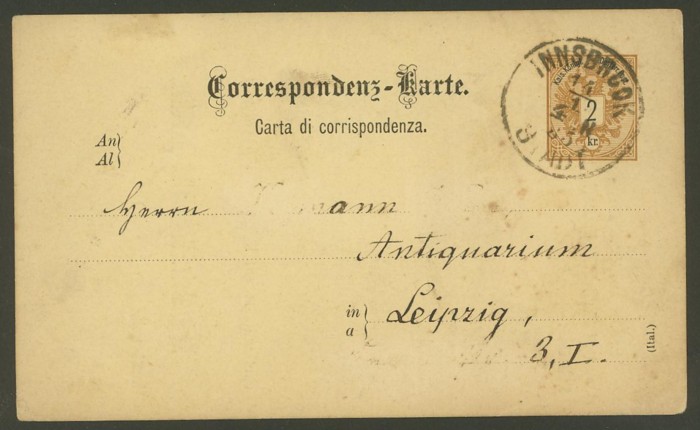 Correspondenz-Karte.
Carta di corrispondenza.
INNSBRUCK
STADT
2
kr.
An
Al
Herrn
Antiquarium
in
a
Leipzig,
3, I.
(Ital.)